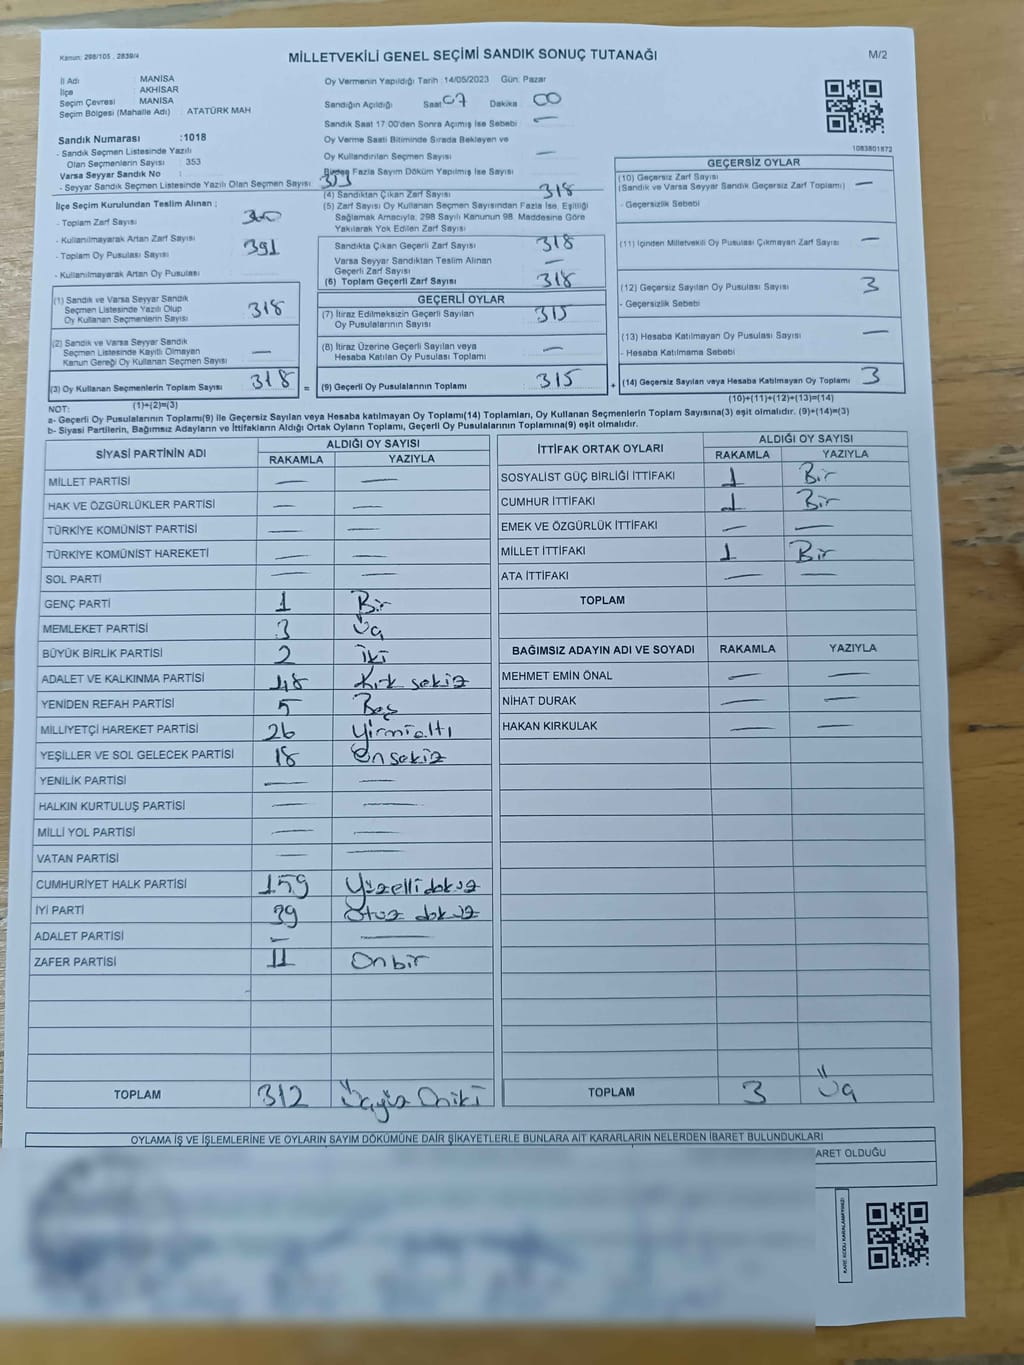 Kanun: 298/105 , 2839/4
MİLLETVEKİLİ GENEL SEÇİMİ SANDIK SONUÇ TUTANAĞI
M/2
İl Adı MANİSA
İlçe AKHİSAR
Seçim Çevresi MANİSA
Seçim Bölgesi (Mahalle Adı) : ATATÜRK MAH
Sandık Numarası :1018
- Sandık Seçmen Listesinde Yazılı
Olan Seçmenlerin Sayısı : 353
Varsa Seyyar Sandık No :
- Seyyar Sandık Seçmen Listesinde Yazılı Olan Seçmen Sayısı :
Oy Vermenin Yapıldığı Tarih :14/05/2023 Gün: Pazar
Sandığın Açıldığı Saat 07 Dakika 00
Sandık Saat 17:00'den Sonra Açımış İse Sebebi : —
Oy Verme Saati Bitiminde Sırada Bekleyen ve
Oy Kullandırılan Seçmen Sayısı —
Fazla Sayım Döküm Yapılmış İse Sayısı
1083801872
İlçe Seçim Kurulundan Teslim Alınan ;
- Toplam Zarf Sayısı
- Kullanılmayarak Artan Zarf Sayısı
- Toplam Oy Pusulası Sayısı 391
- Kullanılmayarak Artan Oy Pusulası :
(1) Sandık ve Varsa Seyyar Sandık
Seçmen Listesinde Yazılı Olup
Oy Kullanan Seçmenlerin Sayısı 318
(2) Sandık ve Varsa Seyyar Sandık
Seçmen Listesinde Kayıtlı Olmayan
Kanun Gereği Oy Kullanan Seçmen Sayısı —
(3) Oy Kullanan Seçmenlerin Toplam Sayısı 318 =
(1)+(2)=(3)
(4) Sandıktan Çıkan Zarf Sayısı 318
(5) Zarf Sayısı Oy Kullanan Seçmen Sayısından Fazla İse, Eşitliği
Sağlamak Amacıyla, 298 Sayılı Kanunun 98. Maddesine Göre
Yakılarak Yok Edilen Zarf Sayısı
Sandıkta Çıkan Geçerli Zarf Sayısı 318
Varsa Seyyar Sandıktan Teslim Alınan
Geçerli Zarf Sayısı —
(6) Toplam Geçerli Zarf Sayısı 318
GEÇERLİ OYLAR
(7) İtiraz Edilmeksizin Geçerli Sayılan
Oy Pusulalarının Sayısı 315
(8) İtiraz Üzerine Geçerli Sayılan veya
Hesaba Katılan Oy Pusulası Toplamı —
(9) Geçerli Oy Pusulalarının Toplamı 315 +
GEÇERSİZ OYLAR
(10) Geçersiz Zarf Sayısı
(Sandık ve Varsa Seyyar Sandık Geçersiz Zarf Toplamı) —
- Geçersizlik Sebebi
(11) İçinden Milletvekili Oy Pusulası Çıkmayan Zarf Sayısı —
(12) Geçersiz Sayılan Oy Pusulası Sayısı 3
- Geçersizlik Sebebi
(13) Hesaba Katılmayan Oy Pusulası Sayısı —
- Hesaba Katılmama Sebebi
(14) Geçersiz Sayılan veya Hesaba Katılmayan Oy Toplamı 3
(10)+(11)+(12)+(13)=(14)
NOT:
a- Geçerli Oy Pusulalarının Toplamı(9) ile Geçersiz Sayılan veya Hesaba katılmayan Oy Toplamı(14) Toplamları, Oy Kullanan Seçmenlerin Toplam Sayısına(3) eşit olmalıdır. (9)+(14)=(3)
b- Siyasi Partilerin, Bağımsız Adayların ve İttifakların Aldığı Ortak Oyların Toplamı, Geçerli Oy Pusulalarının Toplamına(9) eşit olmalıdır.
SİYASİ PARTİNİN ADI ALDIĞI OY SAYISI
RAKAMLA YAZIYLA
MİLLET PARTİSİ — —
HAK VE ÖZGÜRLÜKLER PARTİSİ — —
TÜRKİYE KOMÜNİST PARTİSİ — —
TÜRKİYE KOMÜNİST HAREKETİ — —
SOL PARTİ — —
GENÇ PARTİ 1 Bir
MEMLEKET PARTİSİ 3 Üç
BÜYÜK BİRLİK PARTİSİ 2 İki
ADALET VE KALKINMA PARTİSİ 48 Kırk sekiz
YENİDEN REFAH PARTİSİ 5 Beş
MİLLİYETÇİ HAREKET PARTİSİ 26 Yirmialtı
YEŞİLLER VE SOL GELECEK PARTİSİ 18 Onsekiz
YENİLİK PARTİSİ — —
HALKIN KURTULUŞ PARTİSİ — —
MİLLİ YOL PARTİSİ — —
VATAN PARTİSİ — —
CUMHURİYET HALK PARTİSİ 159 Yüzellidokuz
İYİ PARTİ 39 Otuz dokuz
ADALET PARTİSİ — —
ZAFER PARTİSİ 11 Onbir
TOPLAM 312 Üçyüz Oniki
İTTİFAK ORTAK OYLARI ALDIĞI OY SAYISI
RAKAMLA YAZIYLA
SOSYALİST GÜÇ BİRLİĞİ İTTİFAKI 1 Bir
CUMHUR İTTİFAKI 1 Bir
EMEK VE ÖZGÜRLÜK İTTİFAKI — —
MİLLET İTTİFAKI 1 Bir
ATA İTTİFAKI — —
TOPLAM
BAĞIMSIZ ADAYIN ADI VE SOYADI RAKAMLA YAZIYLA
MEHMET EMİN ÖNAL — —
NİHAT DURAK — —
HAKAN KIRKULAK — —
TOPLAM 3 Üç
OYLAMA İŞ VE İŞLEMLERİNE VE OYLARIN SAYIM DÖKÜMÜNE DAİR ŞİKAYETLERLE BUNLARA AİT KARARLARIN NELERDEN İBARET BULUNDUKLARI
ARET OLDUĞU
KARE KODU KARALAMAYINIZ!